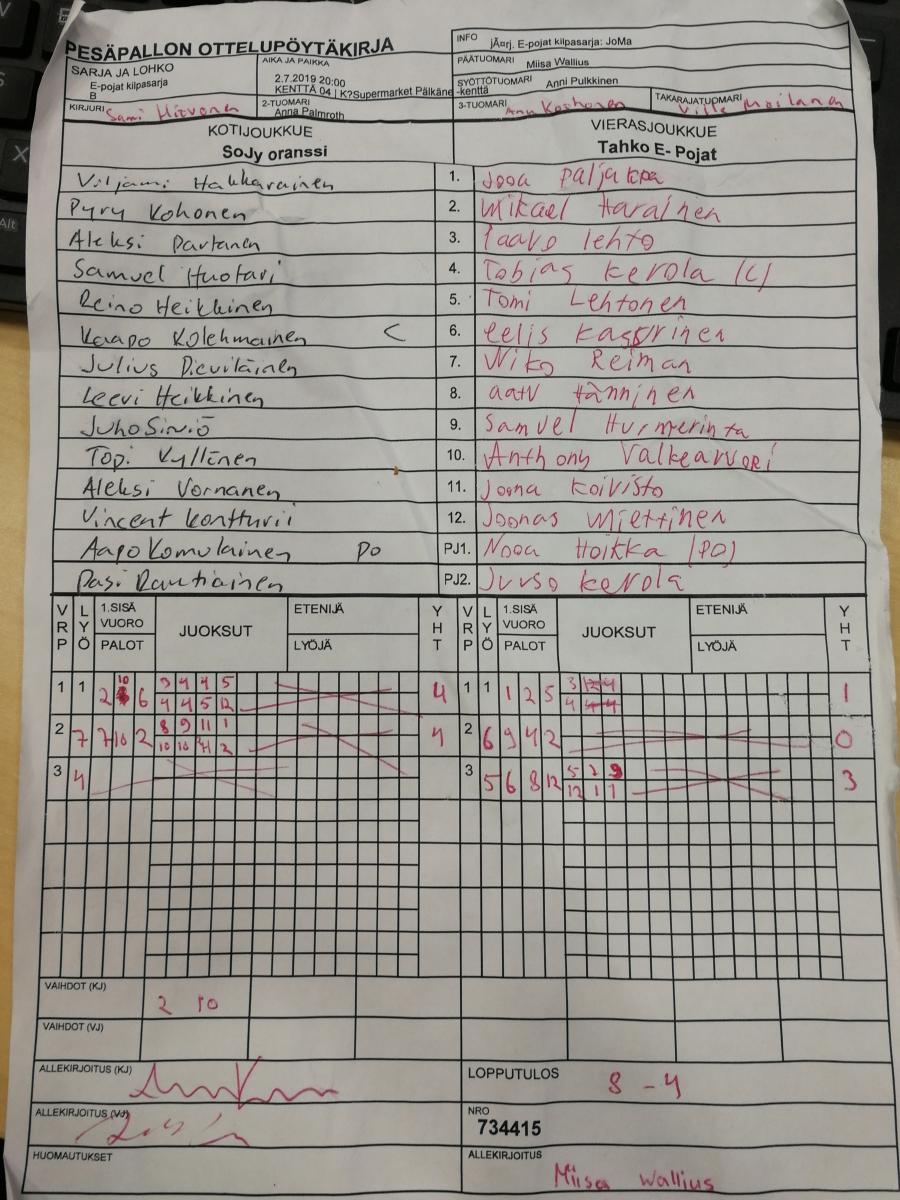 PESÄPALLON OTTELUPÖYTÄKIRJA
INFO jÃ¤rj. E-pojat kilpasarja: JoMa
SARJA JA LOHKO
E-pojat kilpasarja
B
AIKA JA PAIKKA
2.7.2019 20:00
KENTTÄ 04 | K?Supermarket Pälkäne -kenttä
PÄÄTUOMARI Miisa Wallius
SYÖTTÖTUOMARI Anni Pulkkinen
KIRJURI Sami Hirvonen
2-TUOMARI
Anna Palmroth
3-TUOMARI Anu Koshonen
TAKARAJATUOMARI Ville Moilanen
KOTIJOUKKUE
SoJy oranssi
VIERASJOUKKUE
Tahko E- Pojat
Viljami Hakkarainen 1. Jooa paljakka
Pyry Kohonen 2. Mikael Harainen
Aleksi Partanen 3. Taavo lehto
Samuel Huotari 4. Tobias kerola (C)
Reino Heikkinen 5. Tomi Lehtonen
Kaapo Kolehmainen C 6. eelis kasurinen
Julius Pieviläinen 7. Niko Reiman
Leevi Heikkinen 8. aatu Hänninen
Juho Sirviö 9. Samuel Hurmerinta
Topi Kyllönen 10. Anthony Valkearuori
Aleksi Vornanen 11. Joona koivisto
Vincent kontturii 12. Joonas Miettinen
Aapo Komulainen Po PJ1. Nooa Hoikka (PO)
Pasi Rautiainen PJ2. Juuso kerola
VRP LYÖ 1.SISÄ VUORO PALOT JUOKSUT ETENIJÄ LYÖJÄ YHT VRP LYÖ 1.SISÄ VUORO PALOT JUOKSUT ETENIJÄ LYÖJÄ YHT
1 1 2 10 6 3 4 4 5 4 1 1 1 2 5 3 12 4 1
4 4 5 12 4 4 4
2 7 7 10 2 8 9 11 1 4 2 6 9 4 2 0
10 10 11 2
3 4 3 5 6 8 12 5 2 9 3
12 1 1
VAIHDOT (KJ) 2 10
VAIHDOT (VJ)
ALLEKIRJOITUS (KJ)
LOPPUTULOS 8 - 4
ALLEKIRJOITUS (VJ)
NRO
734415
HUOMAUTUKSET
ALLEKIRJOITUS
Miisa Wallius